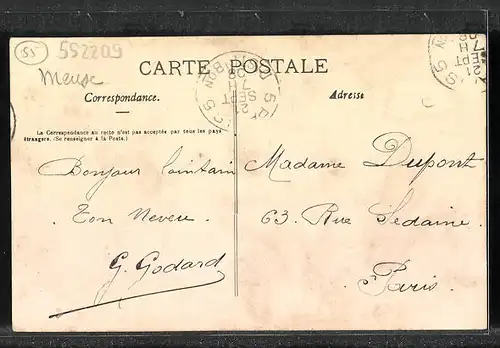 55
552209
Meuse
CARTE POSTALE
Correspondance.
Adresse
La Correspondance au recto n'est pas acceptée par tous les pays
étrangers. (Se renseigner à la Poste.)
Bonjour lointain
Ton Neveu
G. Godard
Madame Dupont
63. Rue Sedaine.
Paris.
21
SEPT
7